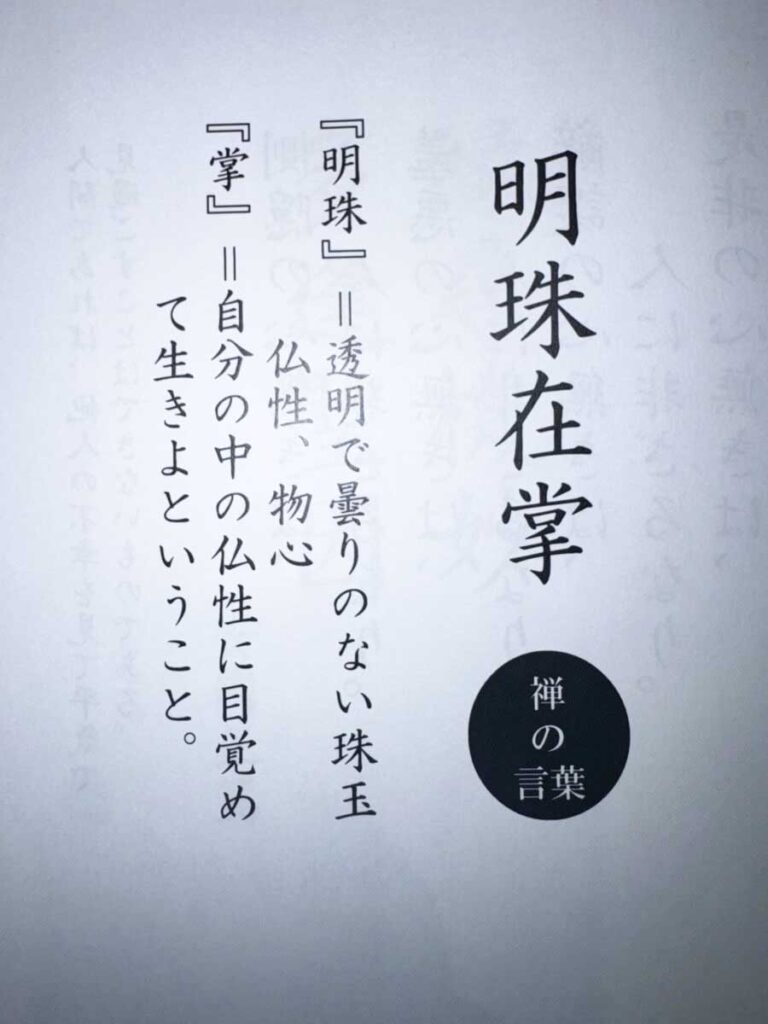 明珠在掌
禅の言葉
『明珠』＝透明で曇りのない珠玉
仏性、物心
『掌』＝自分の中の仏性に目覚め
て生きよということ。